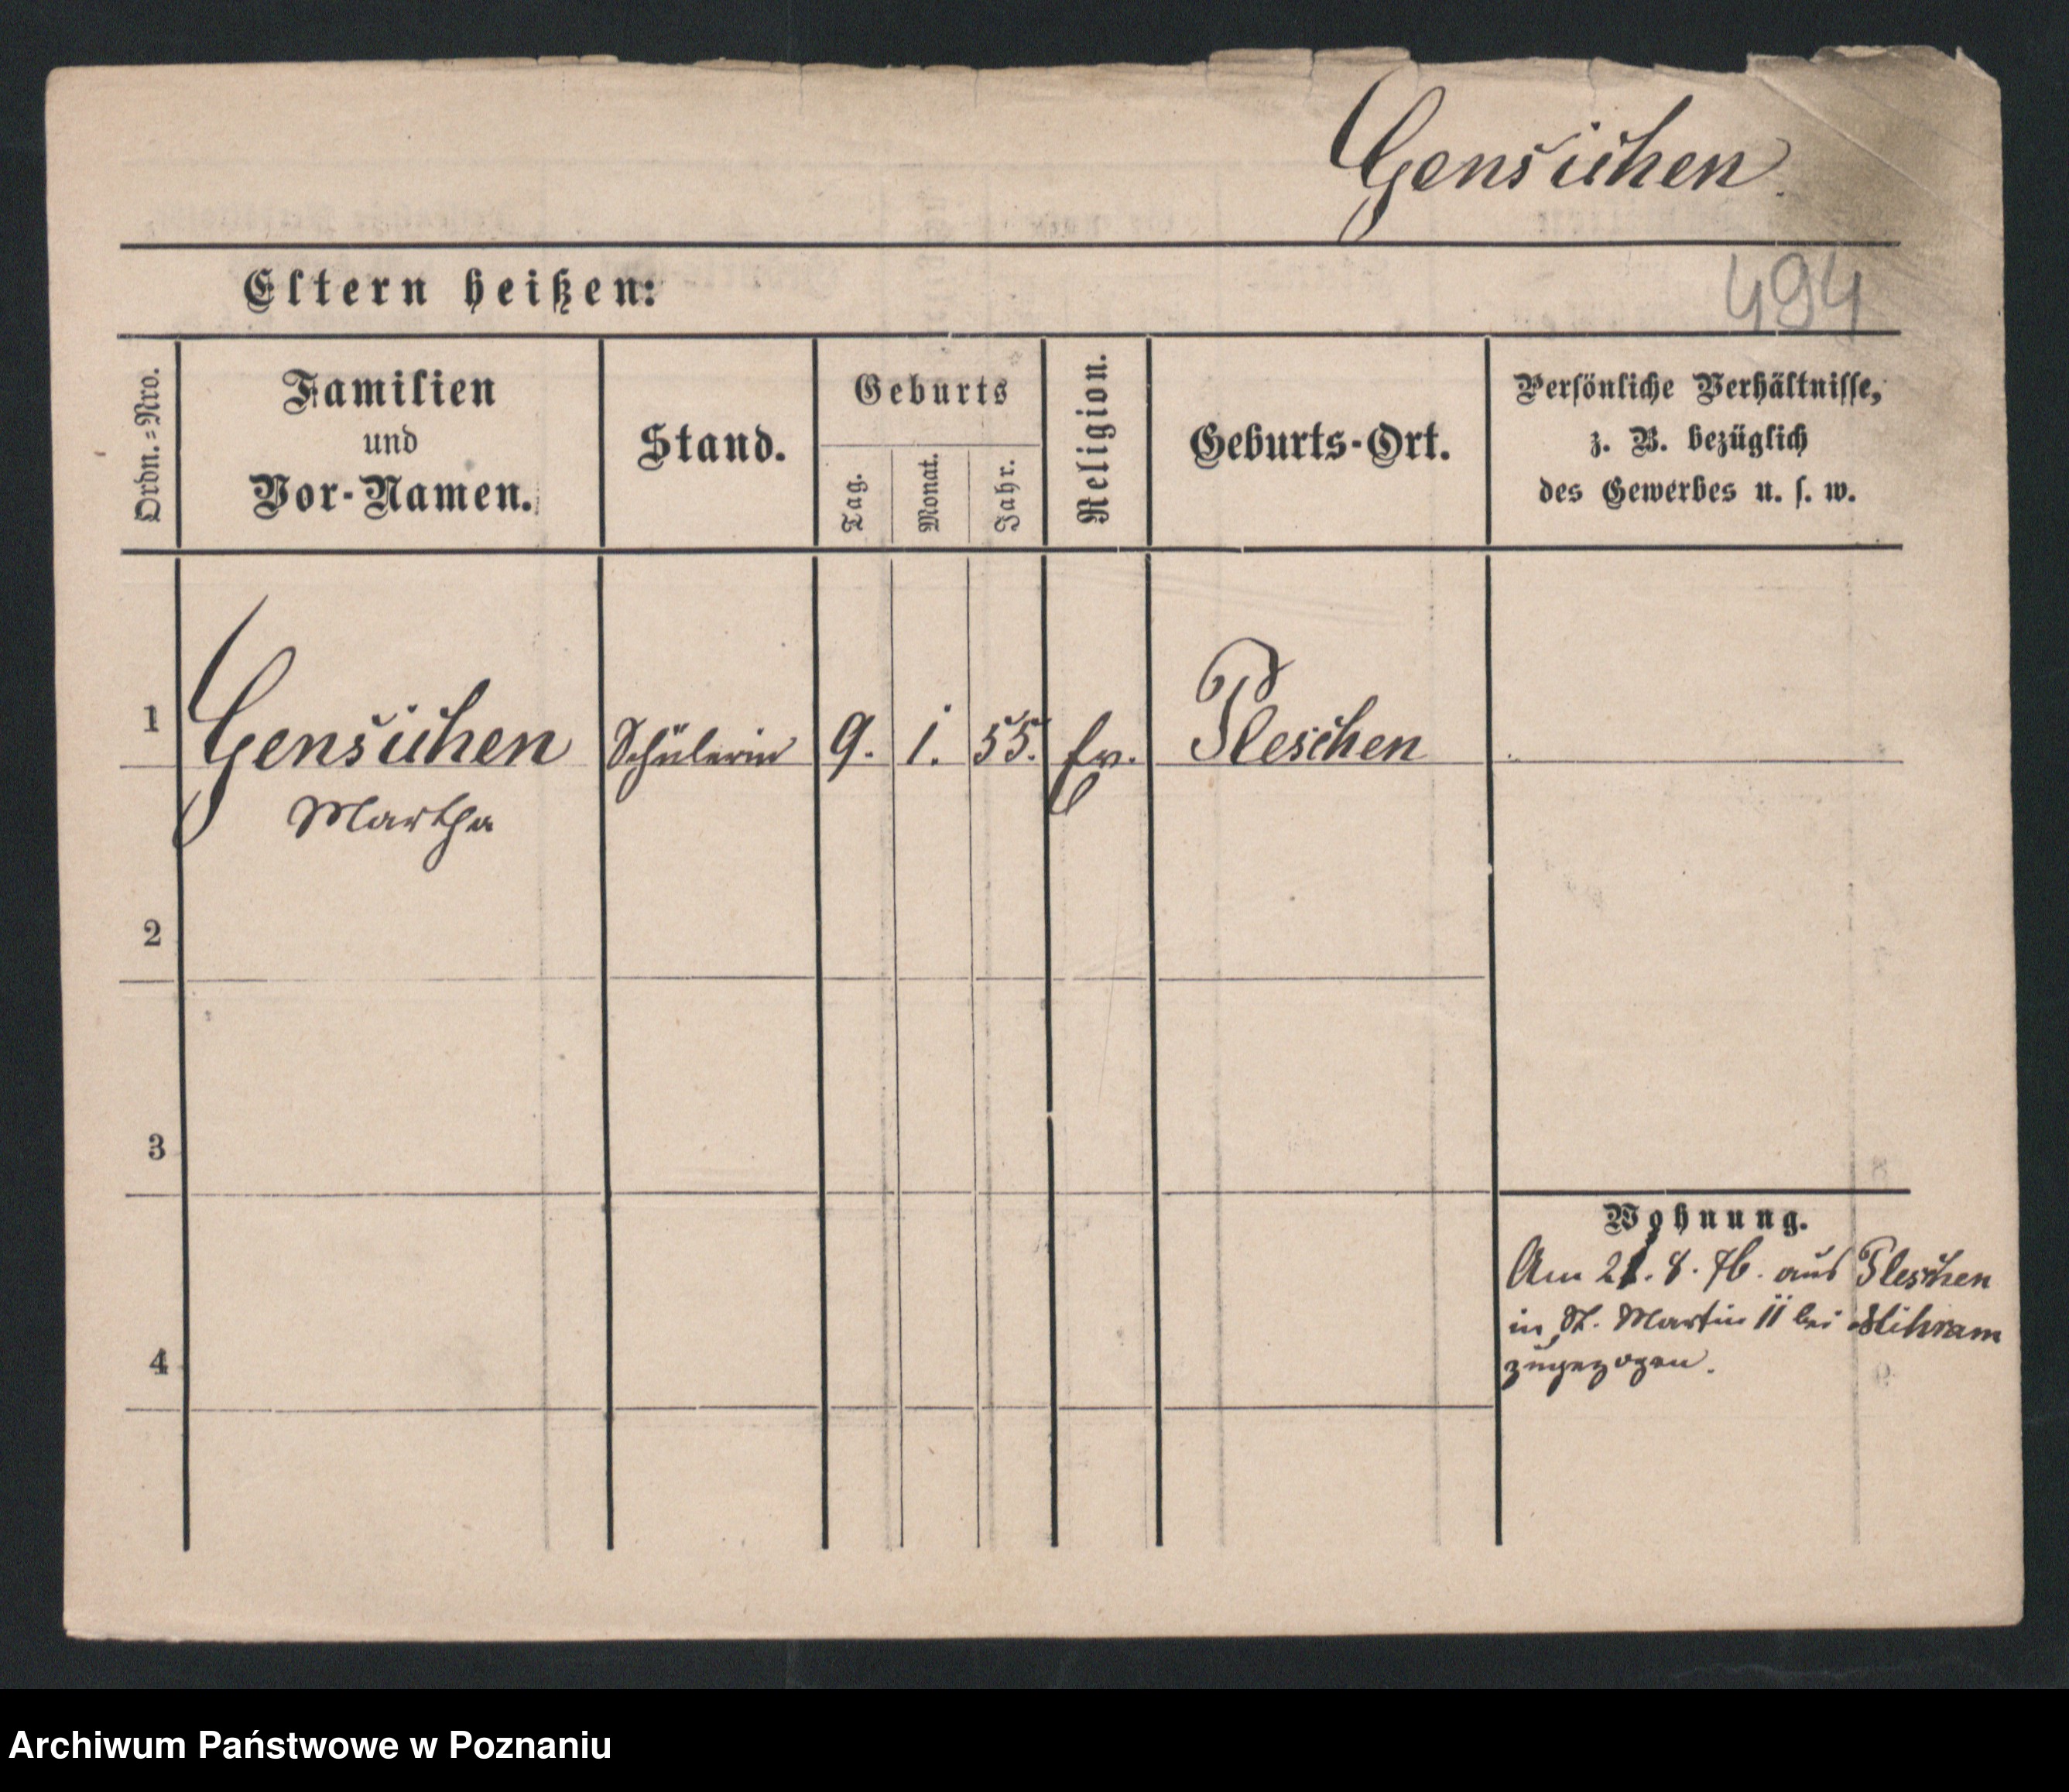 Gensichen.
Eltern heißen:
494
Ordn.=Nro.
Familien
und
Vor-Namen.
Stand.
Geburts
Tag.
Monat.
Jahr.
Religion.
Geburts-Ort.
Persönliche Verhältnisse,
z. B. bezüglich
des Gewerbes u. s. w.
1
Gensichen Schülerin 9. 1. 55. ev. Pleschen
Martha
2
3
Wohnung.
Am 21. 8. 76. aus Pleschen
in St. Martin 11 bei
zugezogen.
4
Archiwum Państwowe w Poznaniu